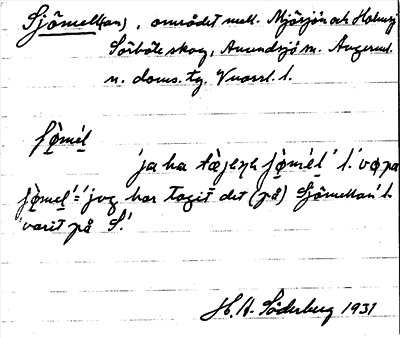 Sjömell(an), området mell. Mjösjön och Holmsj.
Sörböle skog, Anundsjö sn. Ångerml.
n. doms. tg. Vnorrl. l.
jo̱mél
'ja ha tæjeṇ jo̱mél' l. 'vo̱ pa
jo̱mel' = 'jag har tagit det (på) Sjömellan' l.
'varit på S.'
H. A. Söderberg 1931